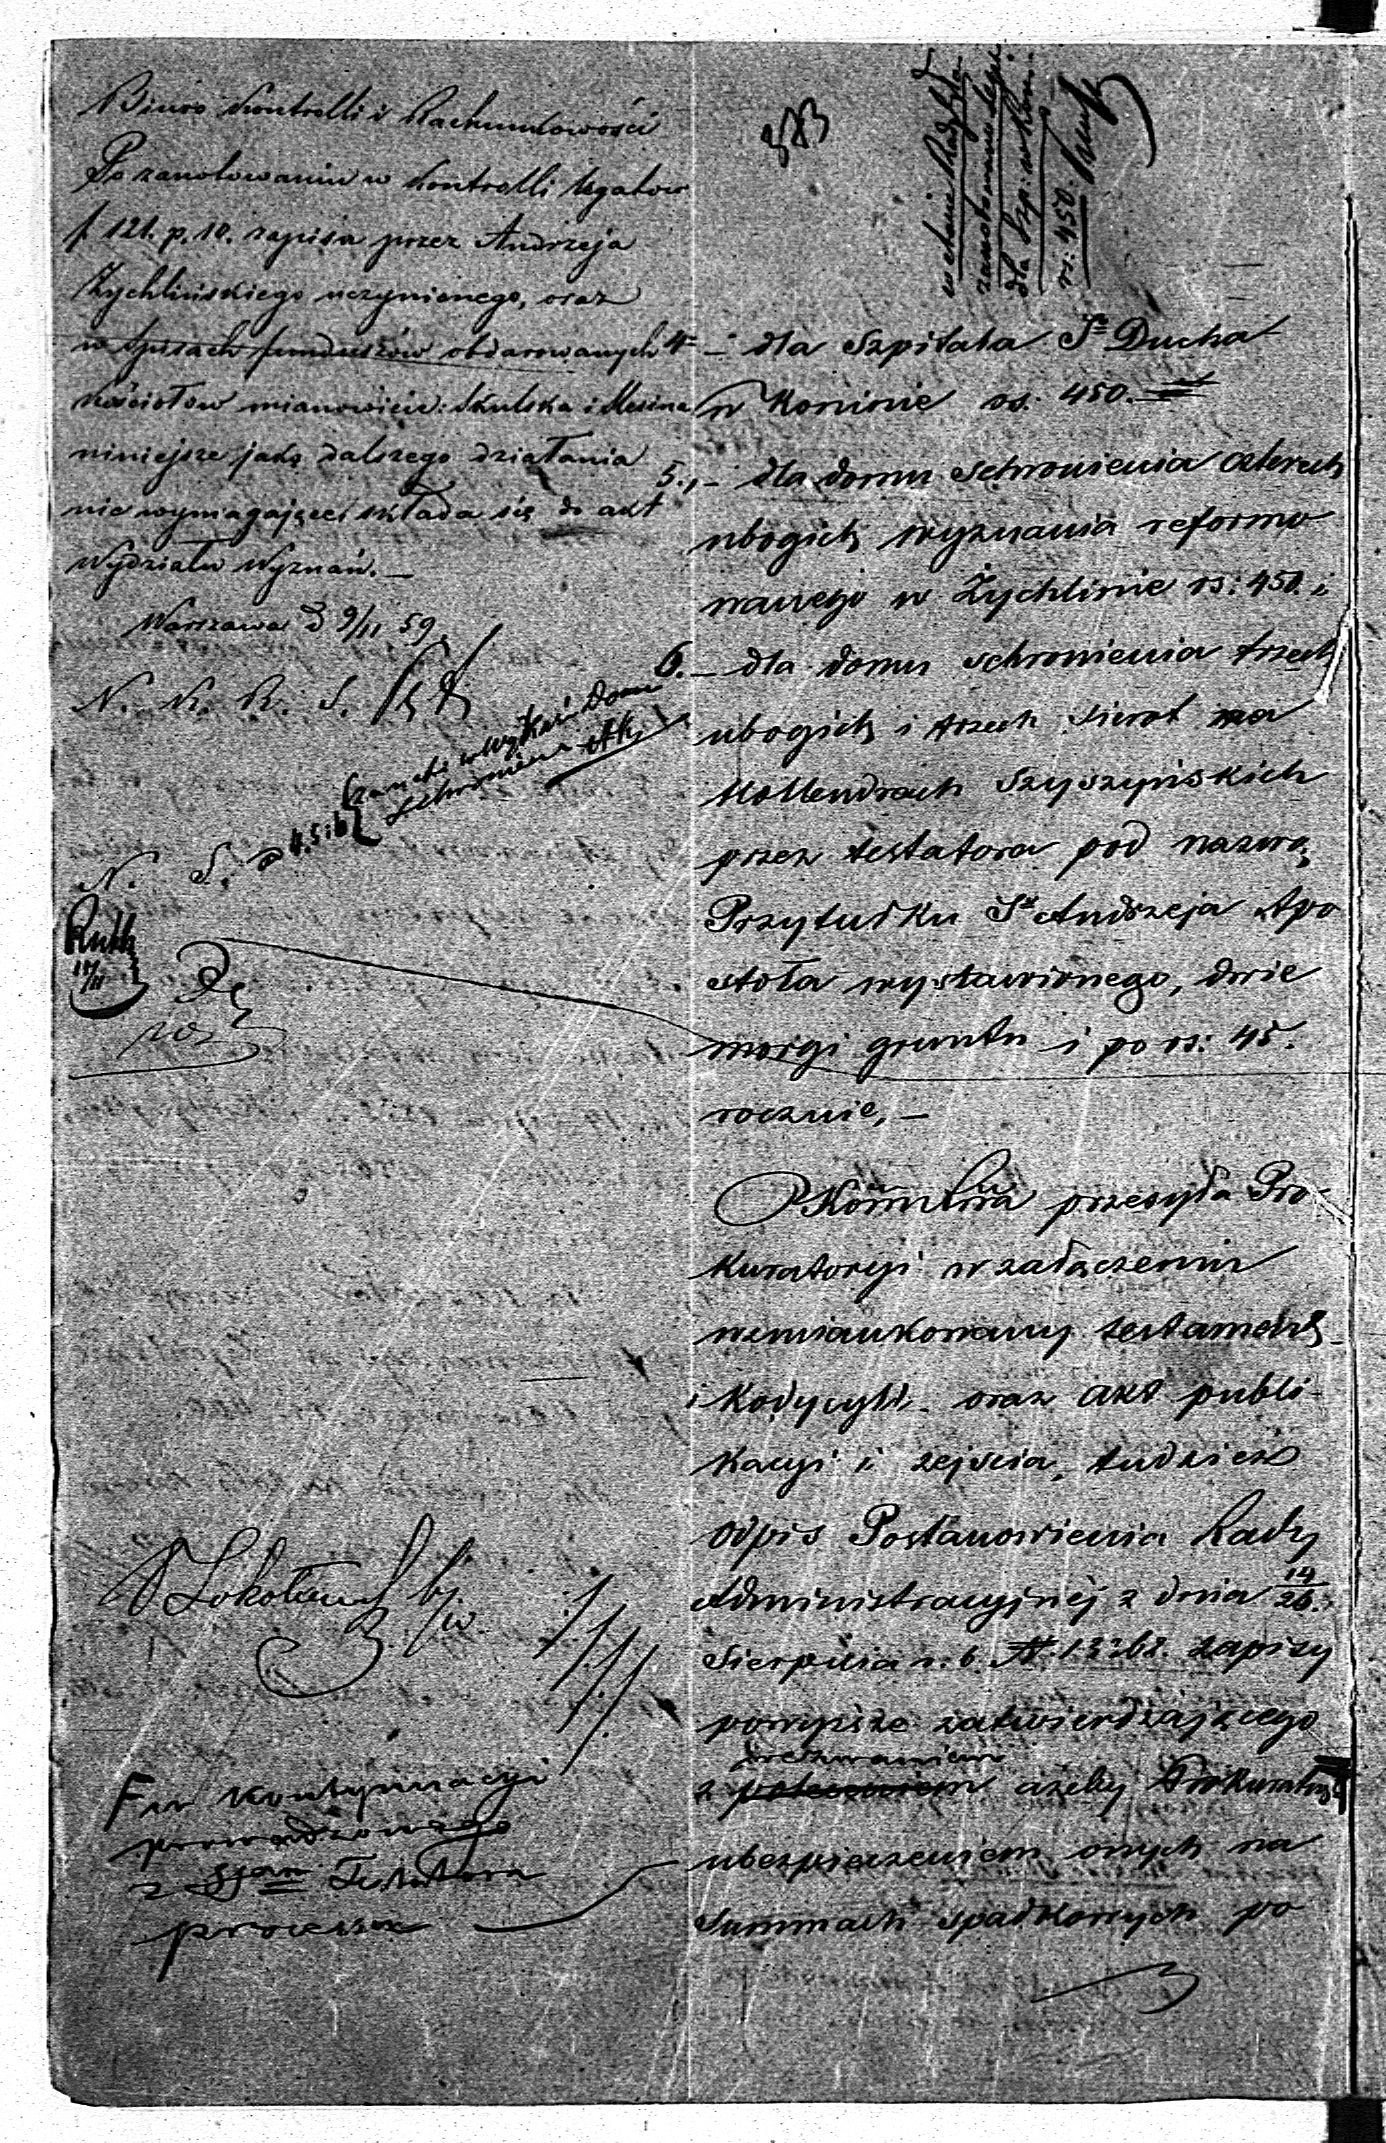 Biuro Kontrolli i Rachunkowości
Po zanotowaniu w Kontrolli Legatow
f. 121. p. 10. zapisu przez Andrzeja
Żychlińskiego uczynionego, oraz
w spisach funduszów obdarowanych
kościołow mianowicie: Skulska i
niniejsze jako dalszego działania
nie wymagające, składa się do akt
Wydziału Wyznań. —
Warszawa d 9/11 59.
N. K. R. S.
Schronienia
N. S.
4. 5 i 6
Ruth
W kontynuacyi
prowadzonego
z Testatora
processu
383
zanotowano
dla Szp: w Kon:
rs: 450.
4 — dla Szpitala Sº Ducha
w Koninie rs. 450. —
5., — dla domu schronienia czterech
ubogich wyznania reformo
wanego w Żychlinie rs: 450. i
6. — dla domu schronienia trzech
ubogich i trzech sierot na
Hollendrach Szyszyńskich
przez testatora pod nazwą
Przytułku Sº Andrzeja Apo
stoła wystawionego, dwie
morgi gruntu i po rs: 45.
rocznie, —
przesyła Pro-
kuratoryi w załączeniu
wzmiankowany testament
i kodycyll oraz akt publi-
kacyi i zejścia, tudzież
odpis Postanowienia Rady
Administracyjnej z dnia 14/26.
Sierpnia r. b. Nº zapisy
powyższe zatwierdzającego
wezwaniem
z poleceniem ażeby Prokuratorya
ubezpieczeniem onych na
summach spadkowych po